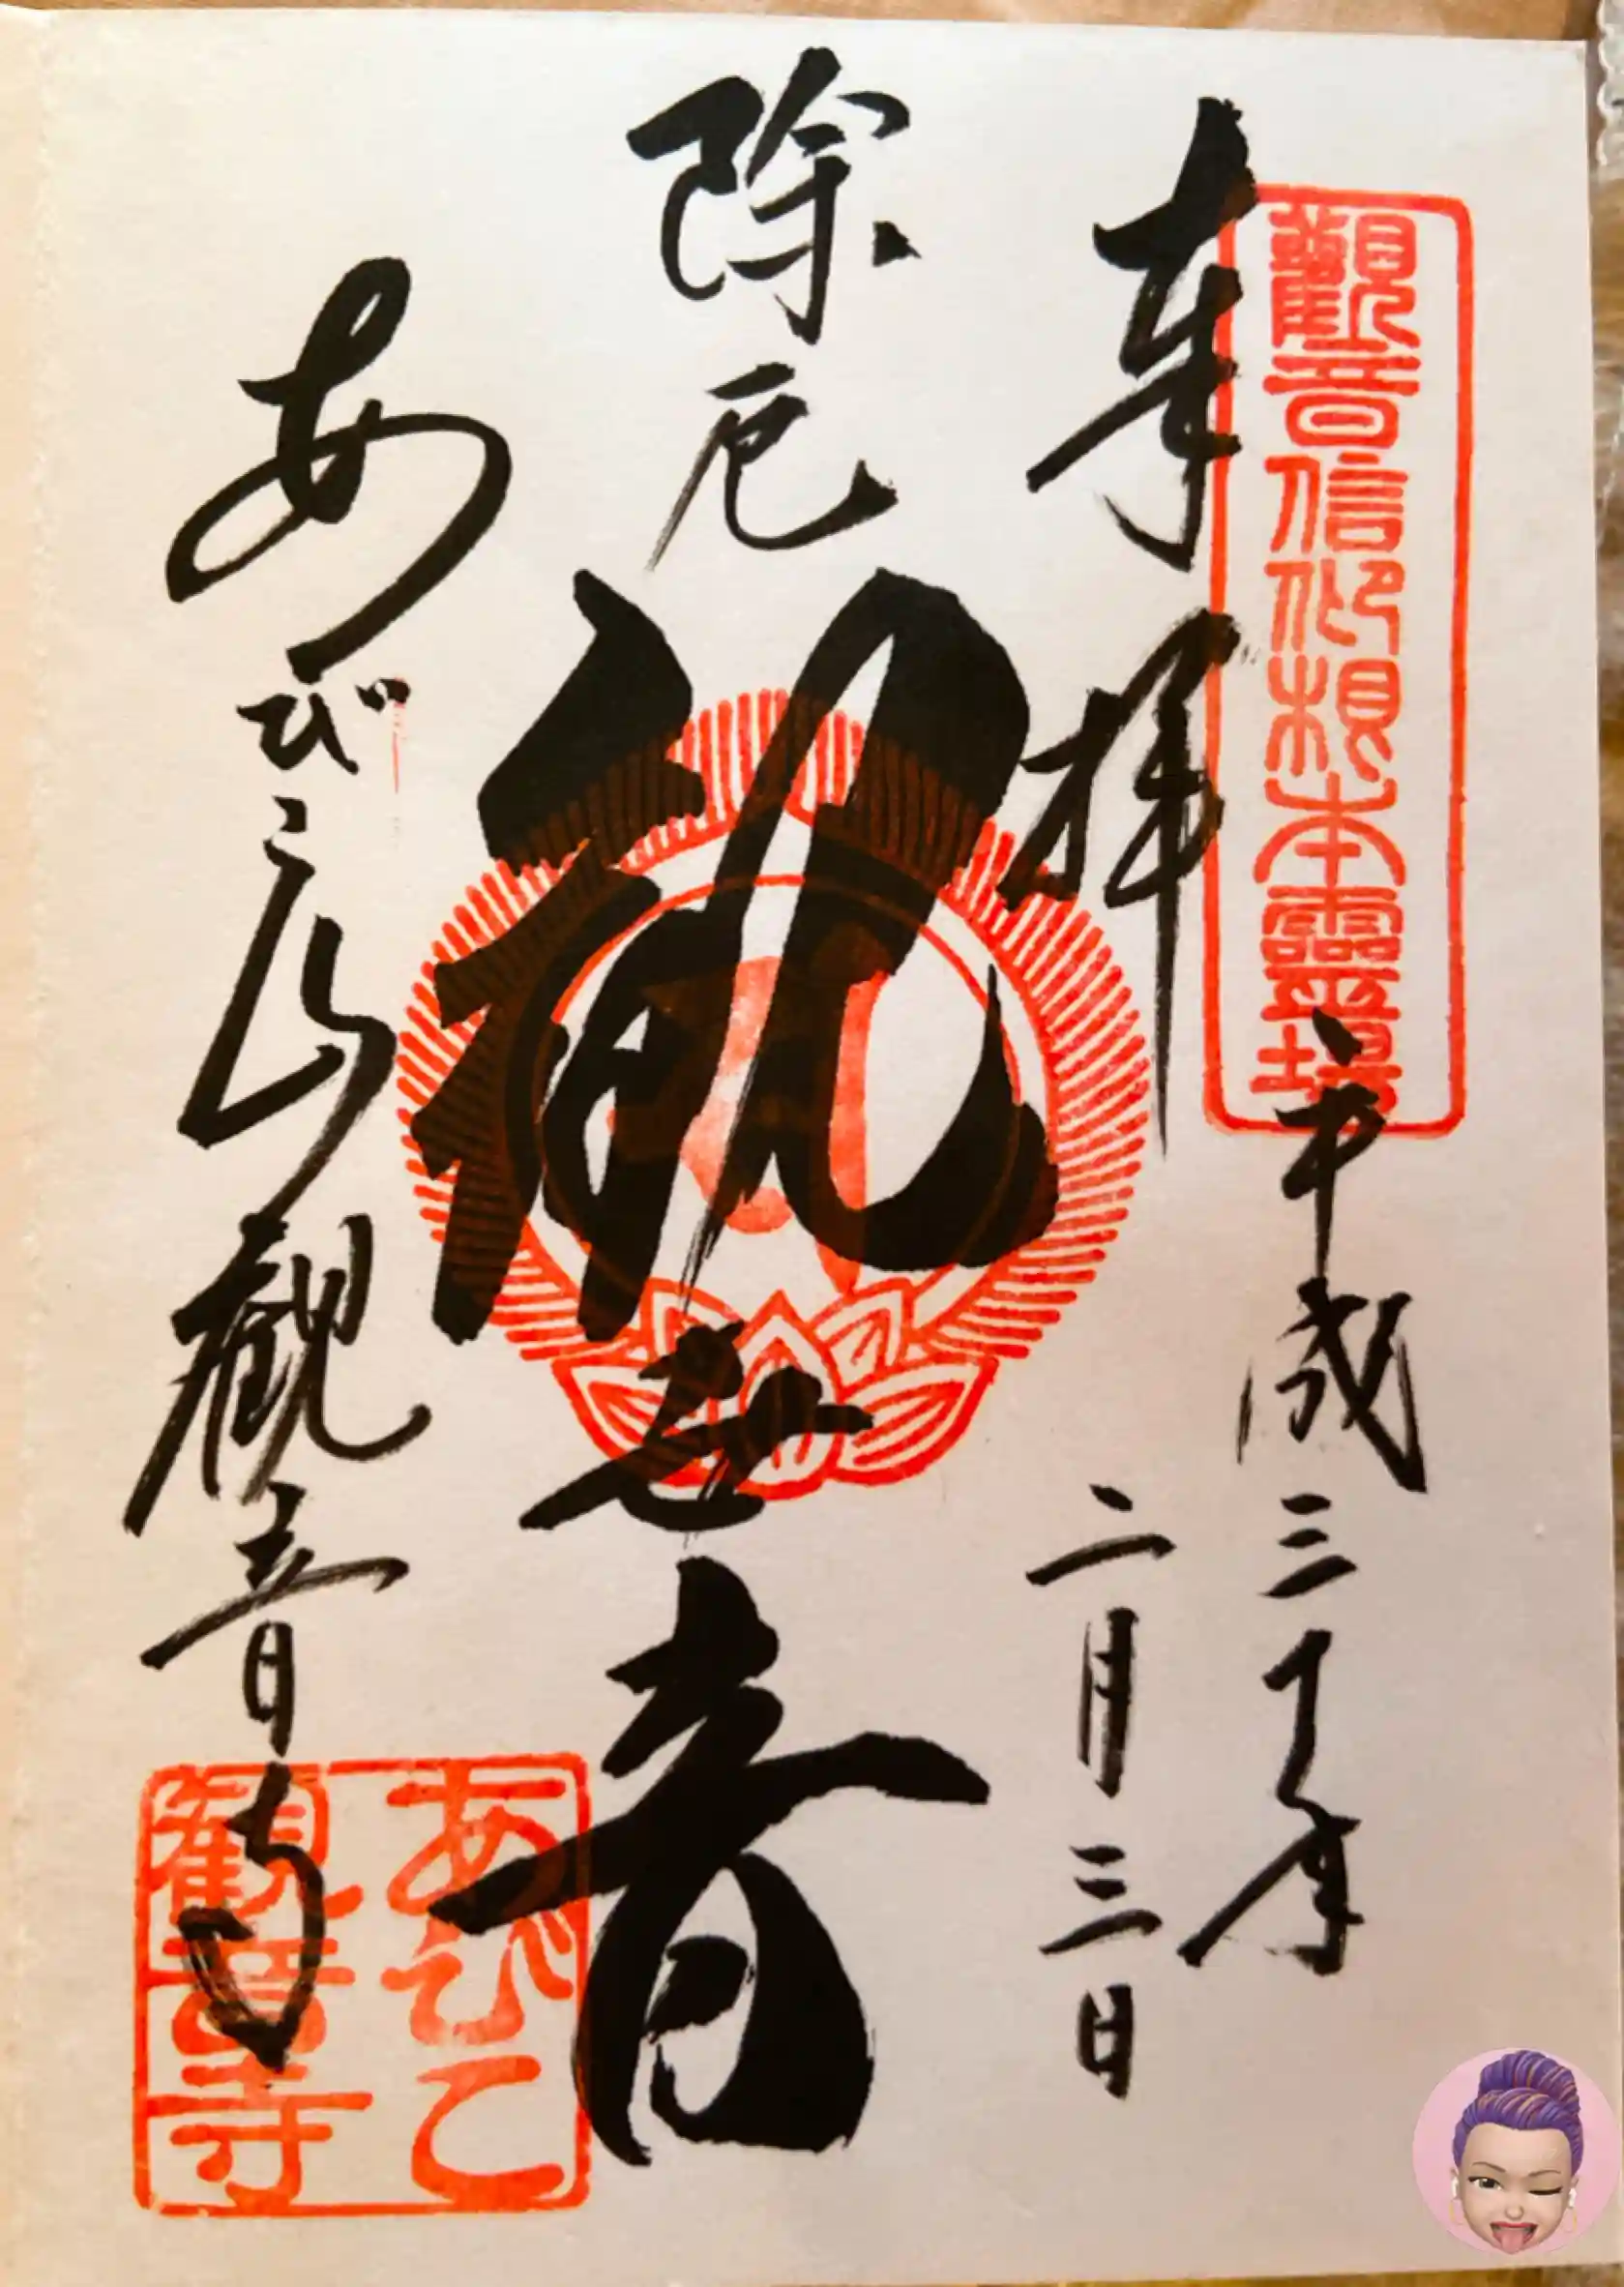 觀音信仰根本靈場
奉拝
平成三十年
二月三日
除厄
觀世音
あびこ山觀音寺
あびこ
観音寺